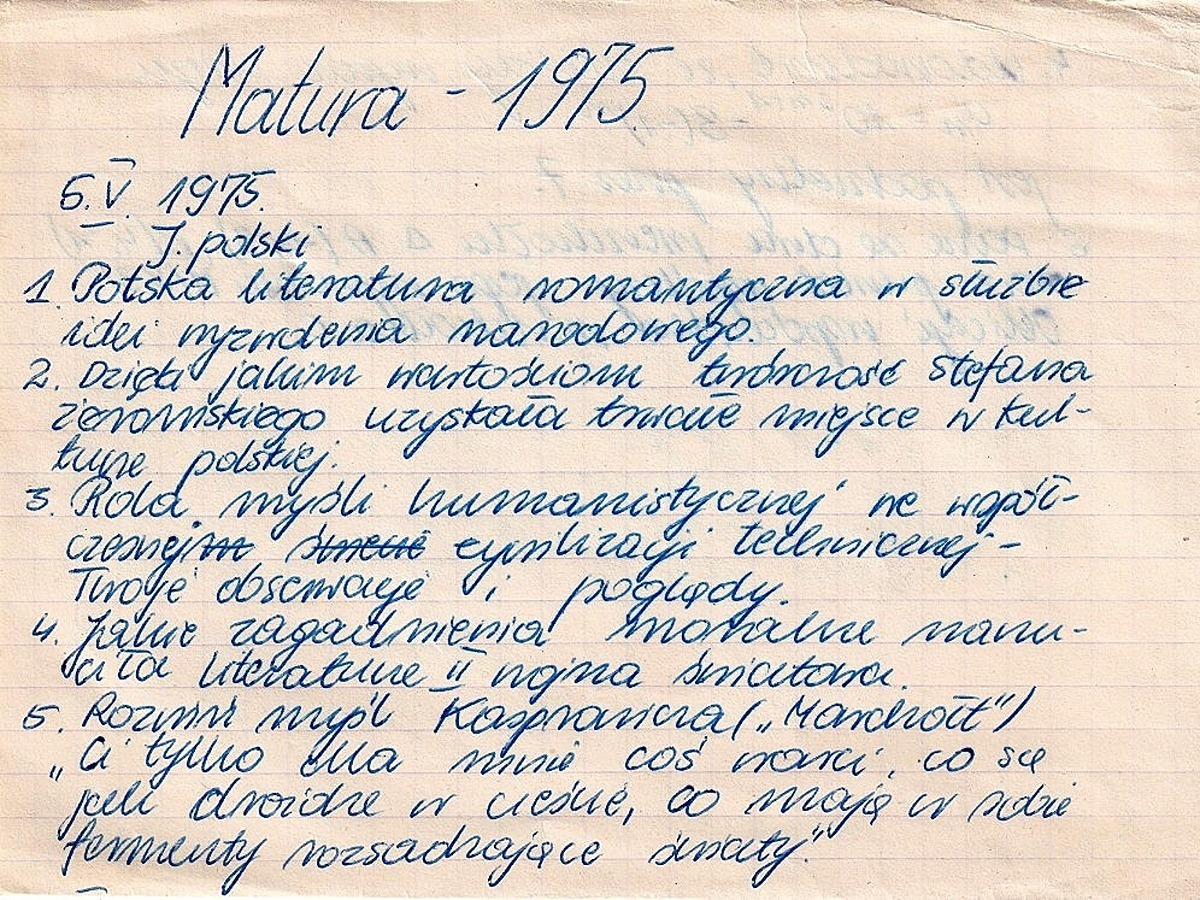 Matura - 1975
5.V. 1975.
J. polski
1. Polska literatura romantyczna w służbie
idei wyzwolenia narodowego.
2. Dzięki jakim wartościom twórczość Stefana
Żeromskiego uzyskała trwałe miejsce w kul-
turze polskiej.
3. Rola myśli humanistycznej we współ-
czesnej cywilizacji technicznej -
Twoje obserwacje i poglądy.
4. Jakie zagadnienia moralne narzu-
ciła literaturze II wojna światowa.
5. Rozwiń myśl Kasprowicza („Marchołt")
„Ci tylko dla mnie coś warci, co są
jak drożdże w cieście, co mają w sobie
fermenty rozsadzające światy."